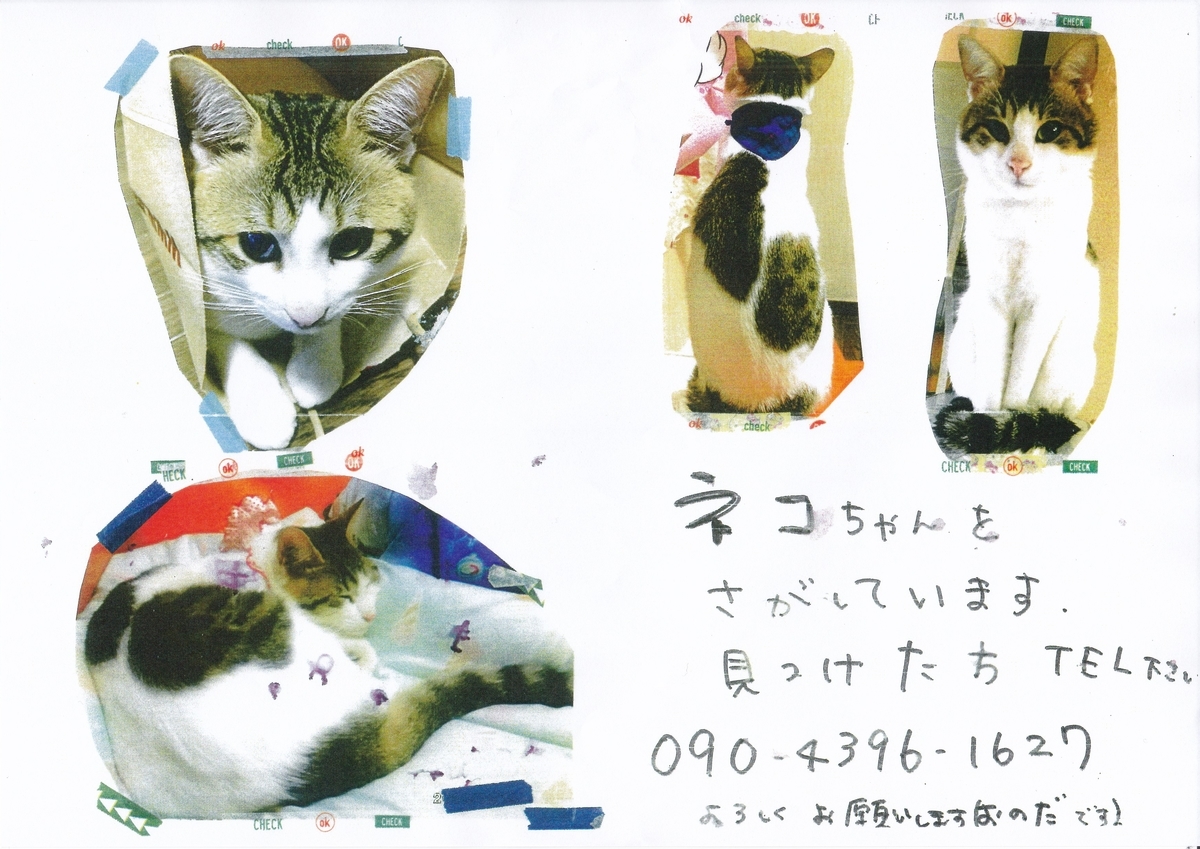 ok check OK
ok check OK
OK CHECK
ok check
CHECK OK CHECK
HECK OK CHECK OK ok
ネコちゃんを
さがしています.
見つけたち TEL下さい
090-4396-1627
よろしくお願いしますなのだです!
CHECK ok CHECK